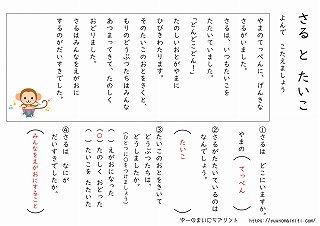 さる と たいこ
よんで こたえましょう
やまのてっぺんに、げんきな
さるがいました。
さるは、いつもたいこを
たたいていました。
「どんどこどん！」
たのしいおとがやまに
ひびきわたります。
そのたいこのおとをきくと、
もりのどうぶつたちはみんな
あつまってきて たのしく
おどりました。
さるはみんなをえがおに
するのがだいすきでした。
①さるは どこにいますか。
やまの（ てっぺん ）
②さるがたたいているのは
なんでしょう。
（ たいこ ）
③たいこのおとをきいて
どうぶつたちは、
どうしましたか。
（ひとつに〇をつけましょう）
（ ）えがおになった
（〇）たのしく おどった
（ ）たいこを たたいた
④さるは なにが
だいすきでしたか。
（ みんなをえがおにすること ）
ゆーのまいにちプリント
https://yuunomainiti.com/